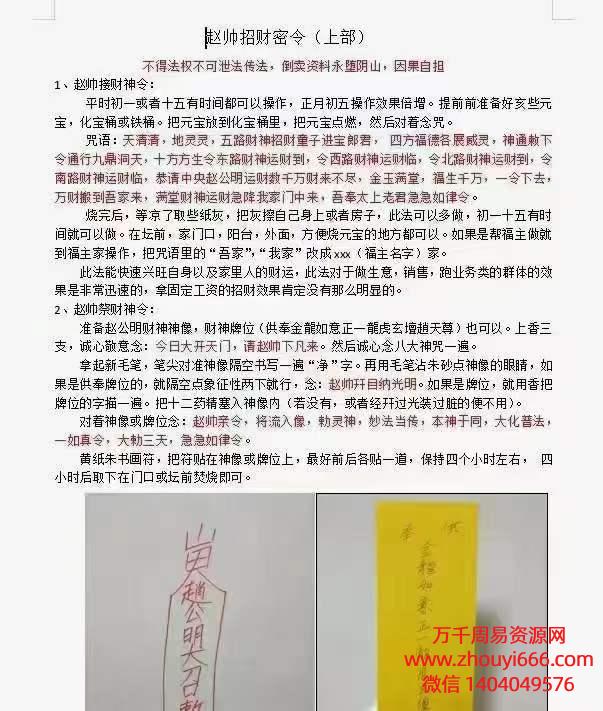 赵帅招财密令（上部）
不得法权不可泄法传法，倒卖资料永堕阴山，因果自担
1、赵帅接财神令：
平时初一或者十五有时间都可以操作，正月初五操作效果倍增。提前前准备好亥些元
宝，化宝桶或铁桶。把元宝放到化宝桶里，把元宝点燃，然后对着念咒。
咒语：天清清，地灵灵，五路财神招财童子进宝郎君， 四方福德各展威灵，神通敕下
令通行九鼎洞天，十方方生令东路财神运财到，令西路财神运财临，令北路财神运财到，令
南路财神运财临，恭请中央赵公明运财数千万财来不尽，金玉满堂，福生千万，一令下去，
万财搬到吾家来，满堂财神运财急降我家门中来，吾奉太上老君急急如律令。
烧完后，等凉了取些纸灰，把灰擦自己身上或者房子，此法可以多做，初一十五有时
间就可以做。在坛前，家门口，阳台，外面，方便烧元宝的地方都可以。如果是帮福主做就
到福主家操作，把咒语里的“吾家”，“我家”改成xxx（福主名字）家。
此法能快速兴旺自身以及家里人的财运，此法对于做生意，销售，跑业务类的群体的效
果是非常迅速的，拿固定工资的招财效果肯定没有那么明显的。
2、赵帅祭财神令：
准备赵公明财神神像，财神牌位（供奉金龍如意正一龍虎玄壇趙天尊）也可以。上香三
支，诚心敬意念：今日大开天门，请赵帅下凡来。然后诚心念八大神咒一遍。
拿起新毛笔，笔尖对准神像隔空书写一遍“净”字。再用毛笔沾朱砂点神像的眼睛，如
果是供奉牌位的，就隔空点象征性两下就行，念：赵帅开目纳光明。如果是牌位，就用香把
牌位的字描一遍。把十二药精塞入神像内（若没有，或者经开过光装过脏的便不用）。
对着神像或牌位念：赵帅亲令，将流入像，勅灵神，妙法当传，本神于同，大化普法，
一如真令，大勅三天，急急如律令。
黄纸朱书画符，把符贴在神像或牌位上，最好前后各贴一道，保持四个小时左右， 四
小时后取下在门口或坛前焚烧即可。
趙公明大召
奉 供
金龍如意正一龍虎
万千周易资源网
www.zhouyi666.com
微信 1404049576